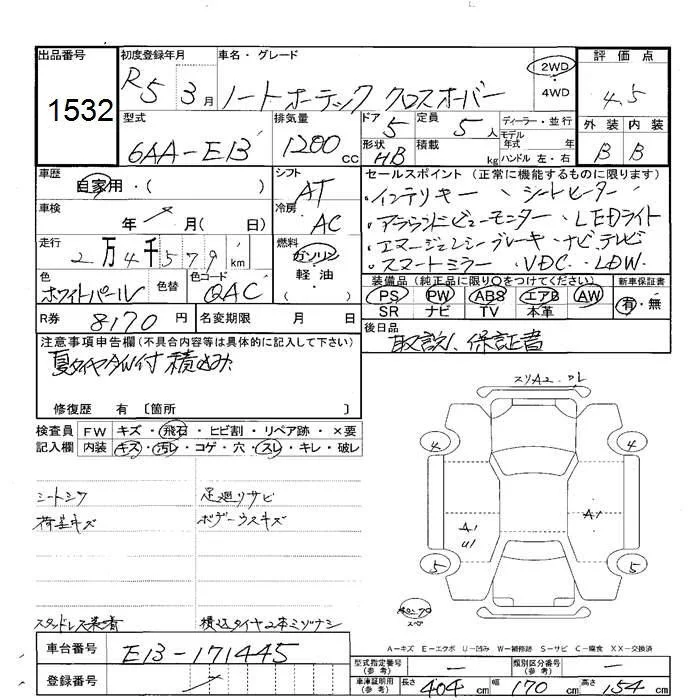 出品番号
1532
初度登録年月
R5 3月
車名・グレード
ノート オーテック クロスオーバー
2WD
4WD
評価点
4.5
型式
6AA-E13
排気量
1200 cc
ドア
5
定員
5人
形状
HB
積載
kg
ディーラー・並行
モデル年式 年式
ハンドル 左・右
外装 内装
B B
車歴
自家用・( )
シフト
AT
車検
年 月( 日)
冷房
AC
走行
2万4千579km
燃料
ガソリン
軽油
・( )
色
ホワイトパール
色替
色コード
QAC
R券 8170円
名変期限 月 日
セールスポイント(正常に機能するものに限ります)
・インテリキー 、シートヒーター
・アラウンドビューモニター ・LEDライト
・エマージェンシーブレーキ・ナビ、テレビ
・スマートミラー ・VDC・LDW
装備品(純正品に限り〇をつけてください)
PS PW ABS エアB AW
SR ナビ TV 本革
新車保証書
有・無
後日品
取説、保証書
注意事項申告欄(不具合内容等は具体的に記入して下さい)
夏タイヤ 積込み
修復歴 有〔箇所 〕
検査員 FW キズ・飛石・ヒビ割・リペア跡・×要
記入欄 内装 キズ・汚レ・コゲ・穴・スレ・キレ・破レ
シートシワ
荷室キズ
足廻りサビ
ボデーウスキズ
スタッドレス装着
積込タイヤ2本ミゾナシ
スリA2
4 4
A1
U1
A1
5 5
スペ
A-キズ E-エクボ U-凹み W-補修跡 S-サビ C-腐食 XX-交換済
車台番号
E13-171445
登録番号
型式指定番号(参考) —
類別区分番号(参考) —
車庫証明用(参考) 長さ 404cm 幅 170cm 高さ 154cm